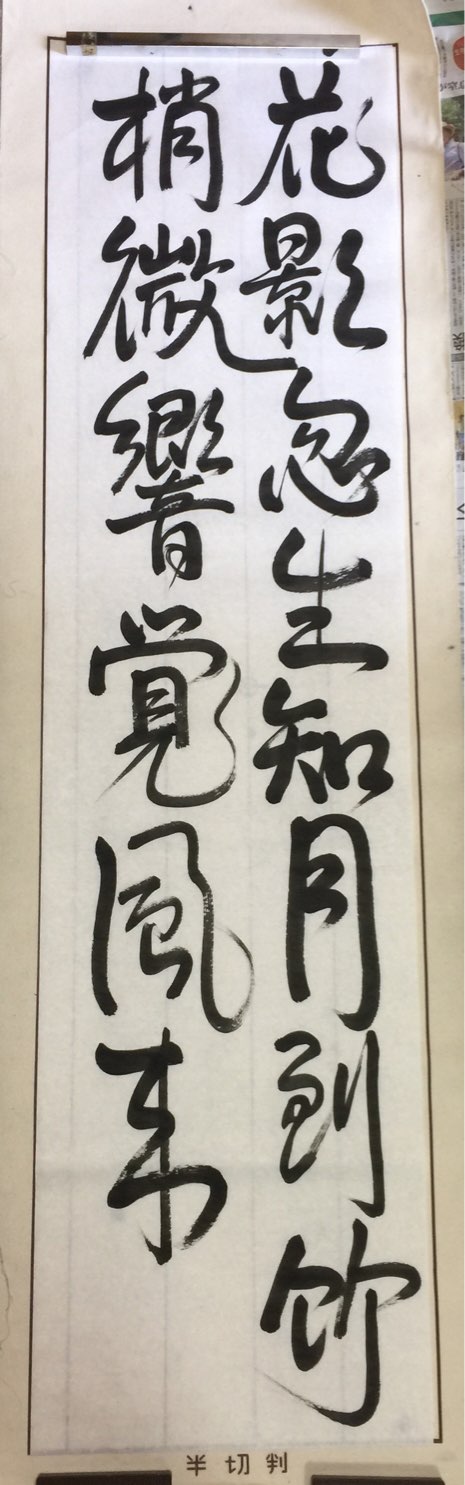 花影忽生知月到竹
梢微響覚風来
半切判